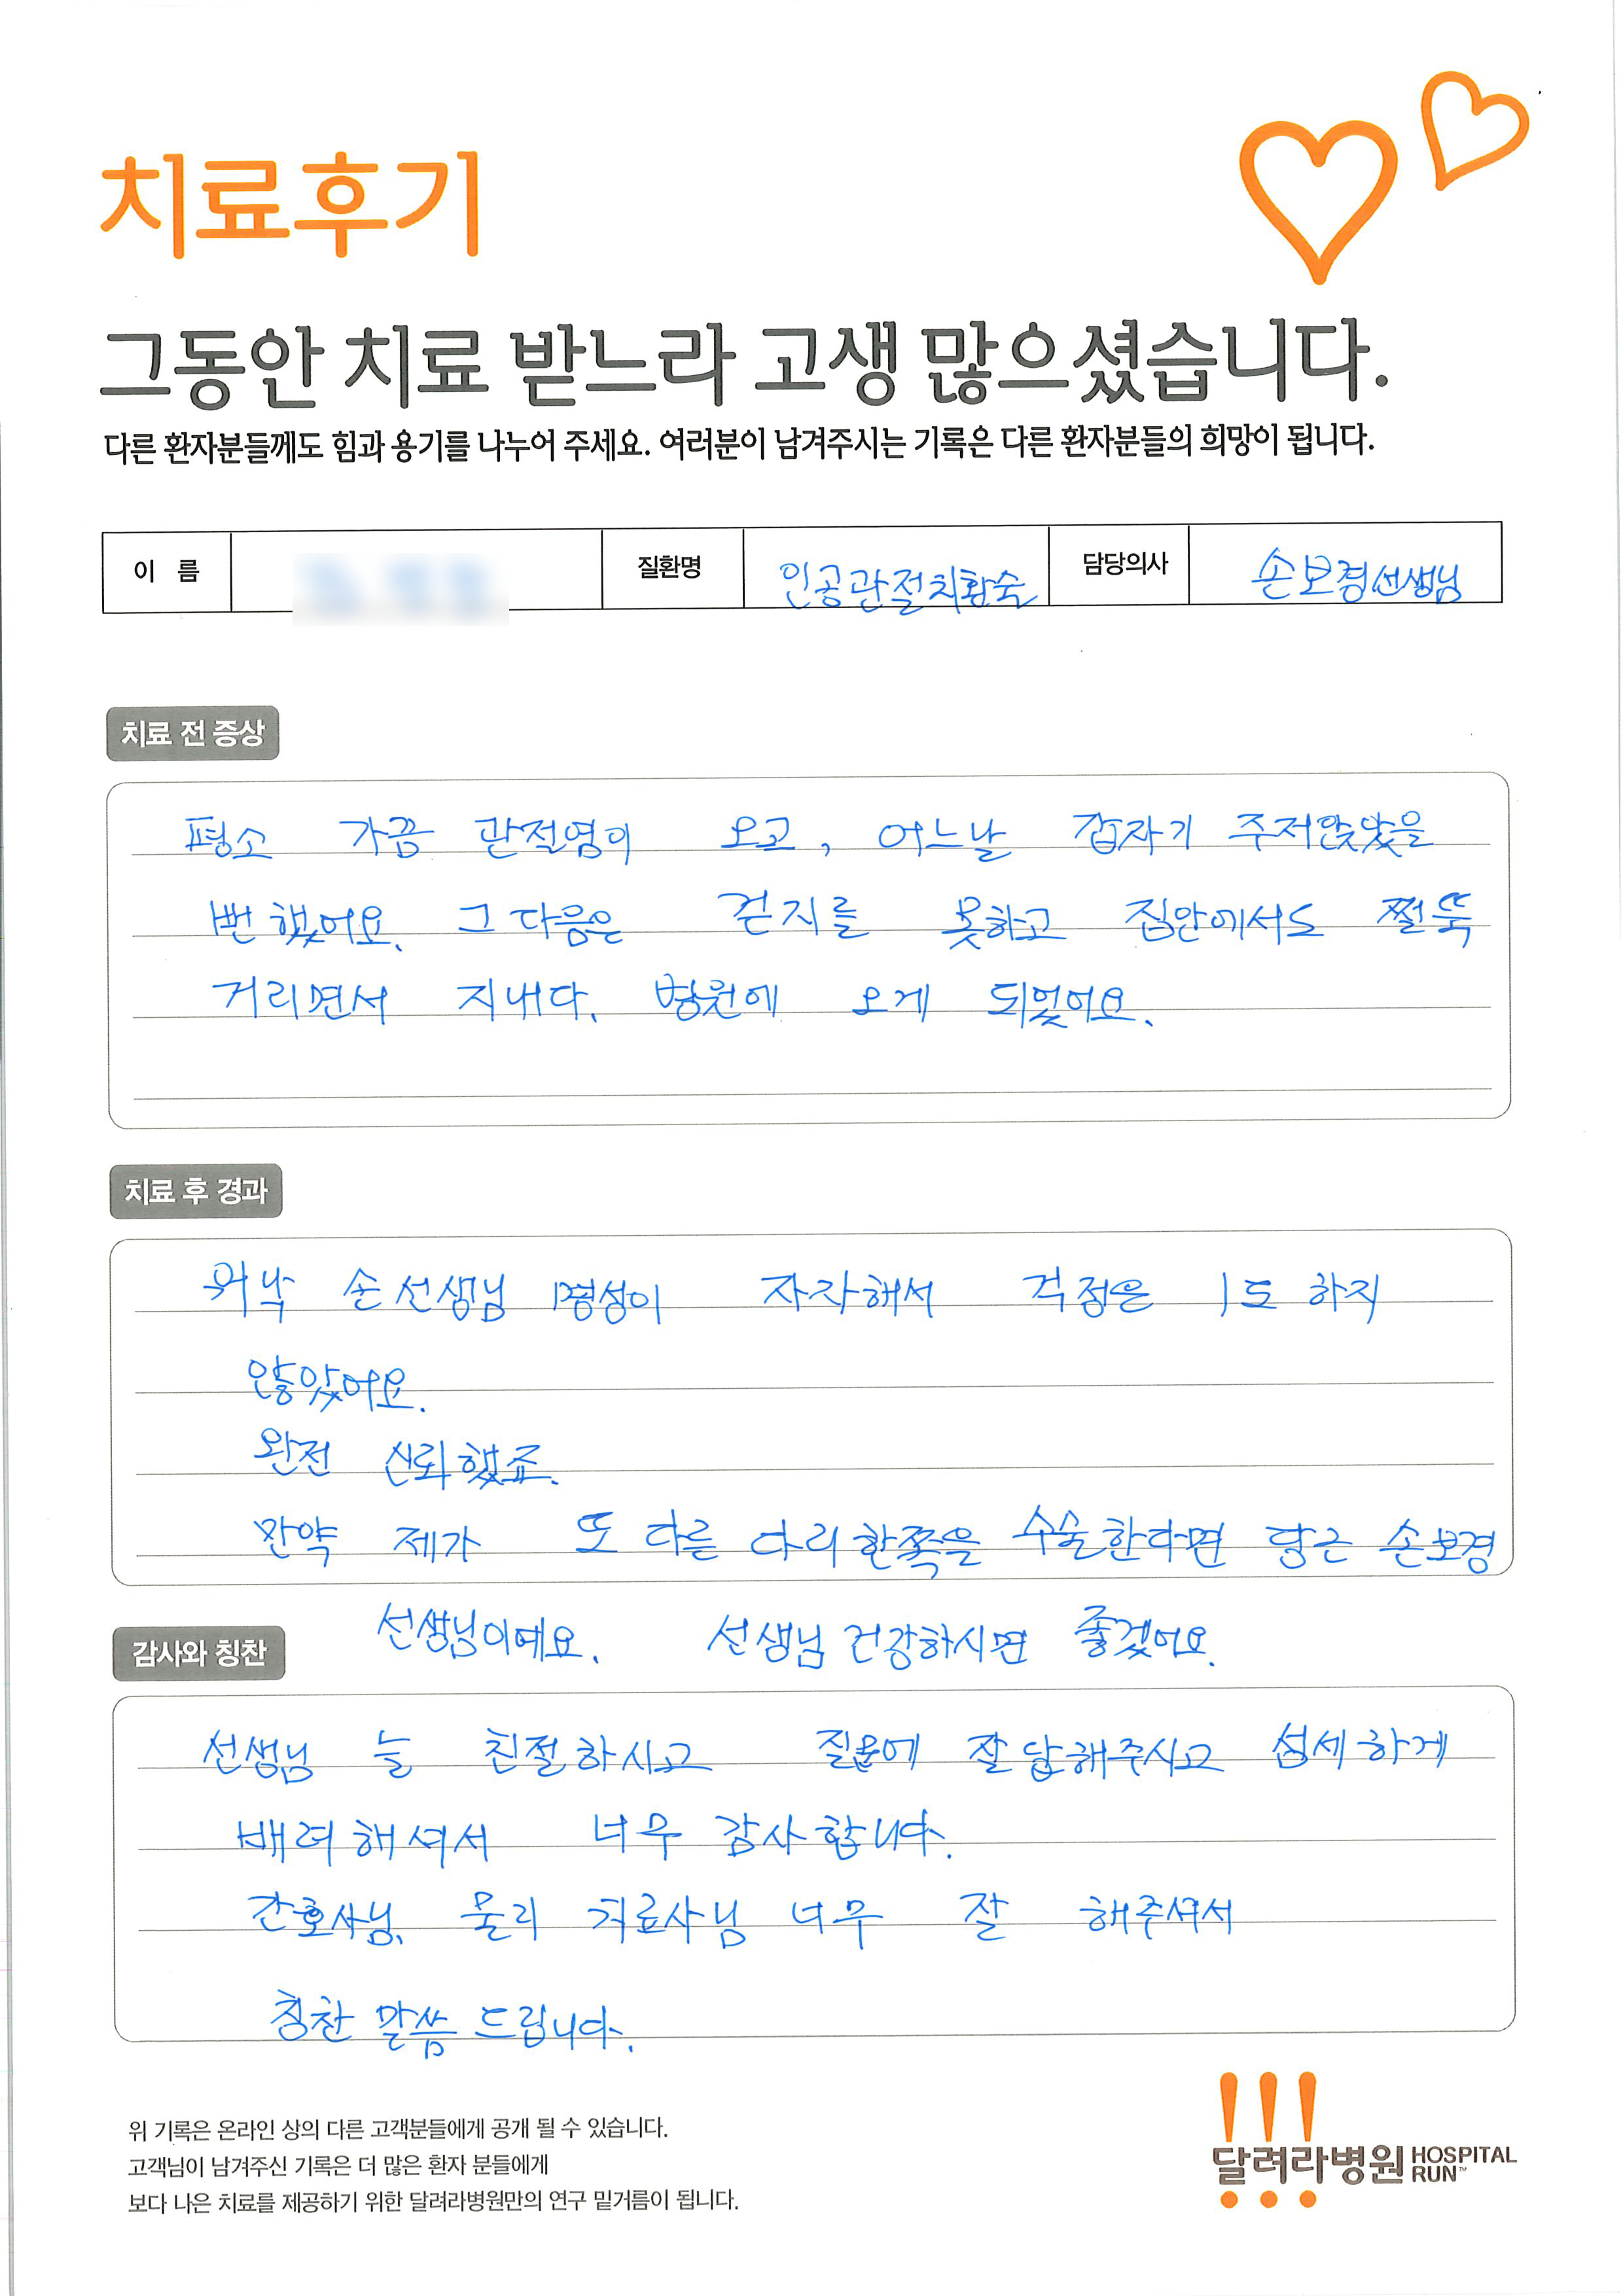 치료후기
그동안 치료 받느라 고생 많으셨습니다.
다른 환자분들께도 힘과 용기를 나누어 주세요. 여러분이 남겨주시는 기록은 다른 환자분들의 희망이 됩니다.
이 름 질환명 인공관절치환술 담당의사 손보경선생님
치료 전 증상
평소 가끔 관절염이 오고, 어느날 갑자기 주저앉았을
뻔 했어요. 그 다음은 걷지를 못하고 집안에서도 쩔뚝
거리면서 지내다. 병원에 오게 되었어요.
치료 후 경과
워낙 손선생님 명성이 자자해서 걱정은 1도 하지
않았어요.
완전 신뢰했죠.
만약 제가 또 다른 다리한쪽을 수술한다면 당근 손보경
선생님이예요. 선생님 건강하시면 좋겠어요.
감사와 칭찬
선생님 늘 친절하시고 질문에 잘 답해주시고 섬세하게
배려해셔서 너무 감사합니다.
간호사님, 물리 치료사님 너무 잘 해주셔서
칭찬 말씀 드립니다.
위 기록은 온라인 상의 다른 고객분들에게 공개 될 수 있습니다.
고객님이 남겨주신 기록은 더 많은 환자 분들에게
보다 나은 치료를 제공하기 위한 달려라병원만의 연구 밑거름이 됩니다.
달려라병원 HOSPITAL RUN™